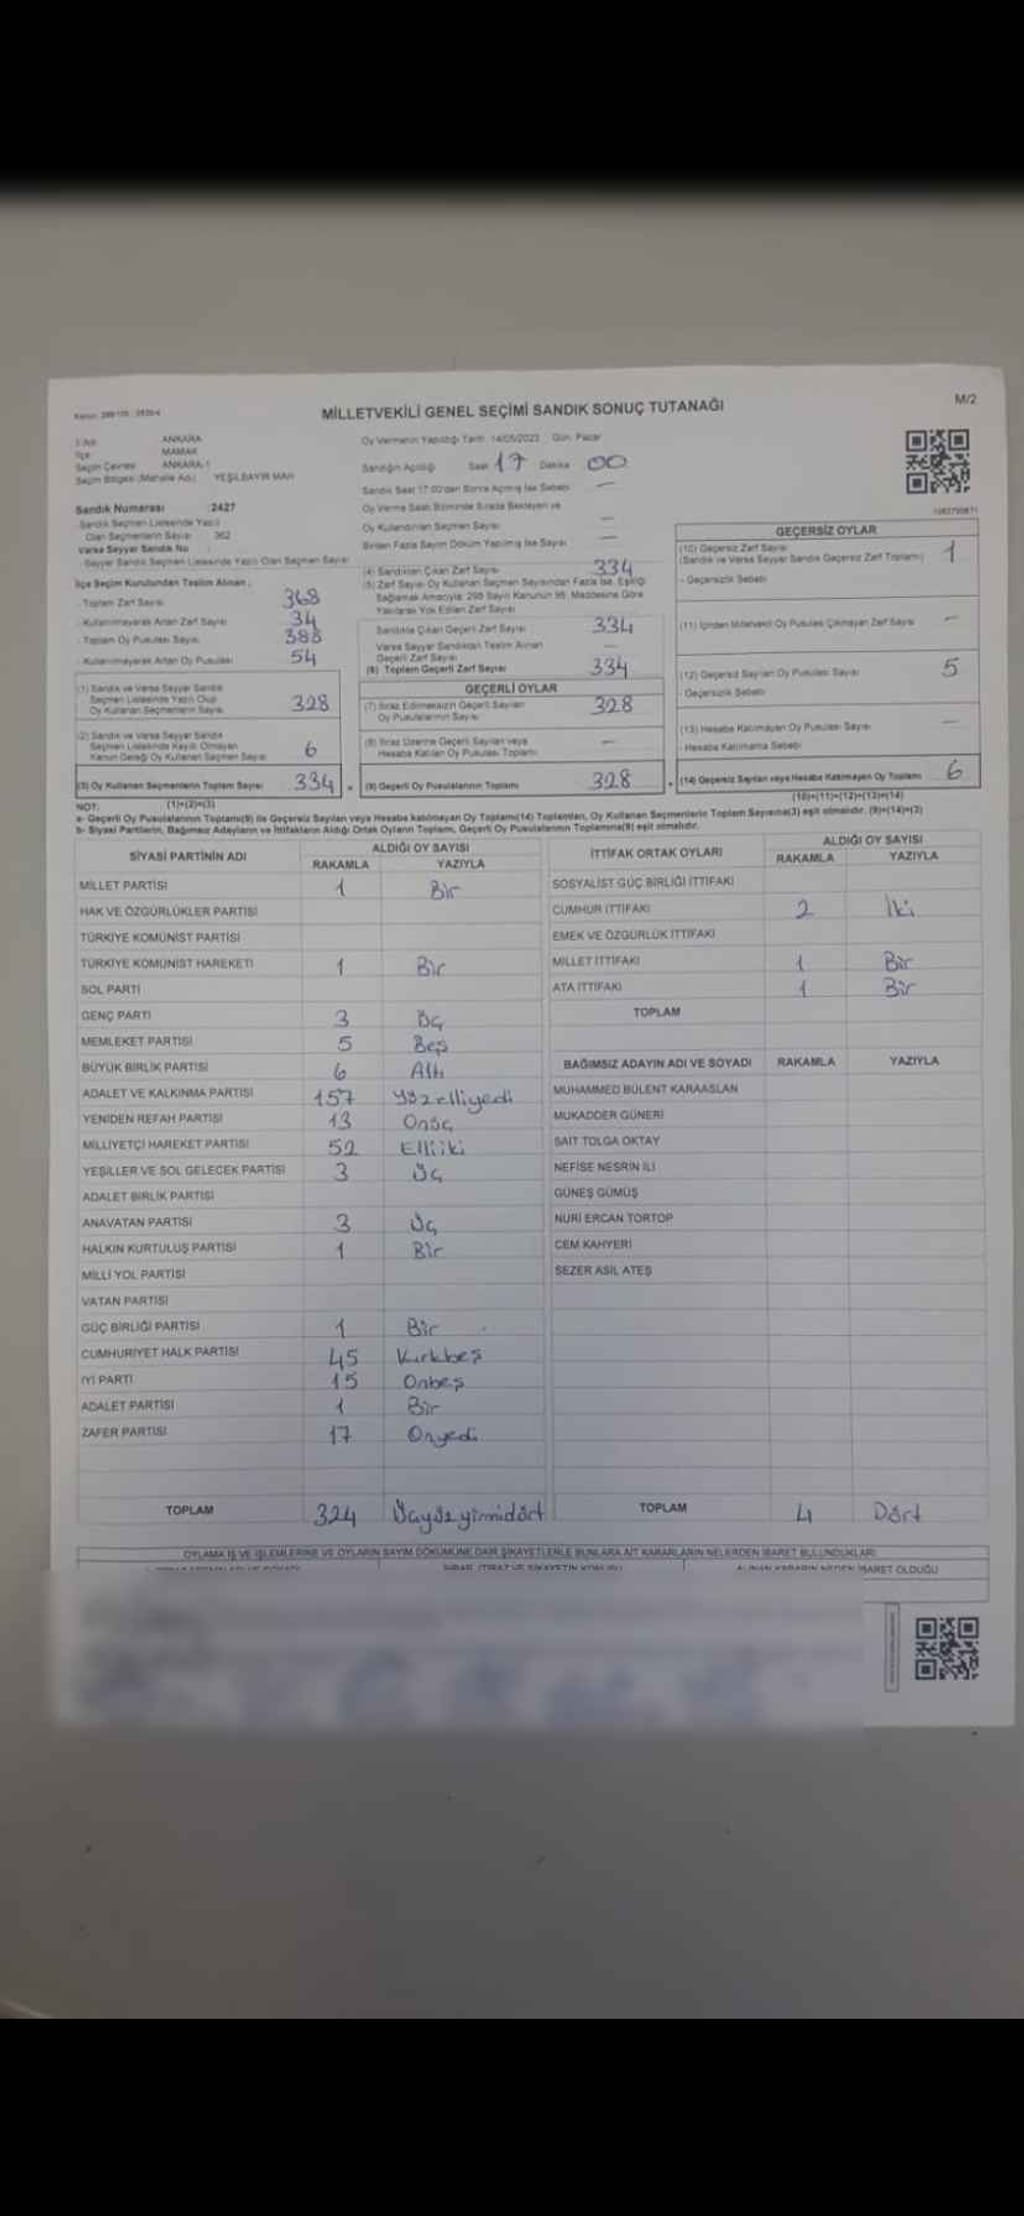 Kanun: 298/105 - 2839/4
MİLLETVEKİLİ GENEL SEÇİMİ SANDIK SONUÇ TUTANAĞI
M/2
İli ANKARA
İlçe MAMAK
Seçim Çevresi ANKARA-1
Seçim Bölgesi (Mahalle Adı) YEŞİLBAYIR MAH
Sandık Numarası :2427
Sandık Seçmen Listesinde Yazılı
Olan Seçmenlerin Sayısı 362
Varsa Seyyar Sandık No
Seyyar Sandık Seçmen Listesinde Yazılı Olan Seçmen Sayısı
İlçe Seçim Kurulundan Teslim Alınan :
- Toplam Zarf Sayısı 368
- Kullanılmayarak Artan Zarf Sayısı 34
- Toplam Oy Pusulası Sayısı 388
- Kullanılmayarak Artan Oy Pusulası 54
(1) Sandık ve Varsa Seyyar Sandık
Seçmen Listesinde Yazılı Olup
Oy Kullanan Seçmenlerin Sayısı 328
(2) Sandık ve Varsa Seyyar Sandık
Seçmen Listesinde Kayıtlı Olmayan
Kanun Gereği Oy Kullanan Seçmen Sayısı 6
(3) Oy Kullanan Seçmenlerin Toplam Sayısı 334
(1)+(2)=(3)
Oy Vermenin Yapıldığı Tarih: 14/05/2023 Gün: Pazar
Sandığın Açıldığı Saat 17 Dakika 00
Sandık Saat 17:00'den Sonra Açılmış İse Sebebi —
Oy Verme Saati Bitiminde Sırada Bekleyen ve
Oy Kullandırılan Seçmen Sayısı —
Birden Fazla Sayım Döküm Yapılmış İse Sayısı —
(4) Sandıktan Çıkan Zarf Sayısı 334
(5) Zarf Sayısı Oy Kullanan Seçmen Sayısından Fazla İse, Eşitliği
Sağlamak Amacıyla 298 Sayılı Kanunun 98. Maddesine Göre
Yakılarak Yok Edilen Zarf Sayısı
Sandıkta Çıkan Geçerli Zarf Sayısı 334
Varsa Seyyar Sandıktan Teslim Alınan
Geçerli Zarf Sayısı —
(6) Toplam Geçerli Zarf Sayısı 334
GEÇERLİ OYLAR
(7) İtiraz Edilmeksizin Geçerli Sayılan
Oy Pusulalarının Sayısı 328
(8) İtiraz Üzerine Geçerli Sayılan veya
Hesaba Katılan Oy Pusulası Toplamı —
(9) Geçerli Oy Pusulalarının Toplamı 328
GEÇERSİZ OYLAR
(10) Geçersiz Zarf Sayısı
(Sandık ve Varsa Seyyar Sandık Geçersiz Zarf Toplamı) 1
- Geçersizlik Sebebi
(11) İçinden Milletvekili Oy Pusulası Çıkmayan Zarf Sayısı —
(12) Geçersiz Sayılan Oy Pusulası Sayısı 5
- Geçersizlik Sebebi
(13) Hesaba Katılmayan Oy Pusulası Sayısı —
- Hesaba Katılmama Sebebi
(14) Geçersiz Sayılan veya Hesaba Katılmayan Oy Toplamı 6
(10)+(11)+(12)+(13)=(14)
NOT:
a- Geçerli Oy Pusulalarının Toplamı(9) ile Geçersiz Sayılan veya Hesaba katılmayan Oy Toplamı(14) Toplamları, Oy Kullanan Seçmenlerin Toplam Sayısına(3) eşit olmalıdır. (9)+(14)=(3)
b- Siyasi Partilerin, Bağımsız Adayların ve İttifakların Aldığı Ortak Oyların Toplamı, Geçerli Oy Pusulalarının Toplamına(9) eşit olmalıdır.
SİYASİ PARTİNİN ADI ALDIĞI OY SAYISI
RAKAMLA YAZIYLA
MİLLET PARTİSİ 1 Bir
HAK VE ÖZGÜRLÜKLER PARTİSİ
TÜRKİYE KOMÜNİST PARTİSİ
TÜRKİYE KOMÜNİST HAREKETİ 1 Bir
SOL PARTİ
GENÇ PARTİ 3 Üç
MEMLEKET PARTİSİ 5 Beş
BÜYÜK BİRLİK PARTİSİ 6 Altı
ADALET VE KALKINMA PARTİSİ 157 Yüzelliyedi
YENİDEN REFAH PARTİSİ 13 Onüç
MİLLİYETÇİ HAREKET PARTİSİ 52 Elliiki
YEŞİLLER VE SOL GELECEK PARTİSİ 3 Üç
ADALET BİRLİK PARTİSİ
ANAVATAN PARTİSİ 3 Üç
HALKIN KURTULUŞ PARTİSİ 1 Bir
MİLLİ YOL PARTİSİ
VATAN PARTİSİ
GÜÇ BİRLİĞİ PARTİSİ 1 Bir
CUMHURİYET HALK PARTİSİ 45 Kırkbeş
İYİ PARTİ 15 Onbeş
ADALET PARTİSİ 1 Bir
ZAFER PARTİSİ 17 Onyedi
TOPLAM 324 Üçyüzyirmidört
İTTİFAK ORTAK OYLARI ALDIĞI OY SAYISI
RAKAMLA YAZIYLA
SOSYALİST GÜÇ BİRLİĞİ İTTİFAKI
CUMHUR İTTİFAKI 2 İki
EMEK VE ÖZGÜRLÜK İTTİFAKI
MİLLET İTTİFAKI 1 Bir
ATA İTTİFAKI 1 Bir
TOPLAM
BAĞIMSIZ ADAYIN ADI VE SOYADI RAKAMLA YAZIYLA
MUHAMMED BÜLENT KARAASLAN
MUKADDER GÜNERİ
SAİT TOLGA OKTAY
NEFİSE NESRİN İLİ
GÜNEŞ GÜMÜŞ
NURİ ERCAN TORTOP
CEM KAHYERİ
SEZER ASİL ATEŞ
TOPLAM 4 Dört
OYLAMA İŞ VE İŞLEMLERİNE VE OYLARIN SAYIM DÖKÜMÜNE DAİR ŞİKAYETLERLE BUNLARA AİT KARARLARIN NELERDEN İBARET BULUNDUKLARI
İHBAR, İTİRAZ VE ŞİKAYETİN KONUSU
ALINAN KARARIN NEDEN İBARET OLDUĞU